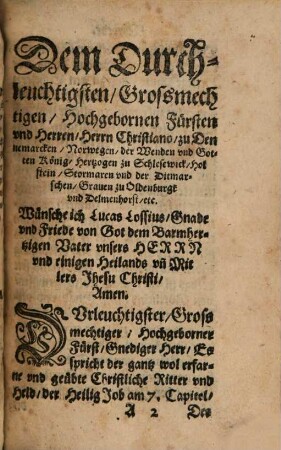 Dem Durch-
leuchtigsten/Grossmech
tigen/ Hochgebornen Fürsten
vnd Herren/Herrn Christiano/zu Den
nemarcken/Norwegen/der Wenden vnd Got-
ten König/Hertzogen zu Schleswick/Hol
stein/Stormaren vnd der Ditmar-
schen/Grauen zu Oldenburgk
vnd Delmenhorst/etc.
Wünsche ich Lucas Lossius/Gnade
vnd Friede von Got dem Barmher-
tzigen Vater vnsers HERRN
vnd einigen Heilands vñ Mit
lers Jhesu Christi/
Amen.
DVrleuchtigster/Gross
mechtiger/Hochgeborner
Fürst/Gnediger Herr/Es
spricht der gantz wol erfar-
ne vnd geübte Christliche Ritter vnd
Held/der Heilig Job am 7. Capitel/
A 2 Des